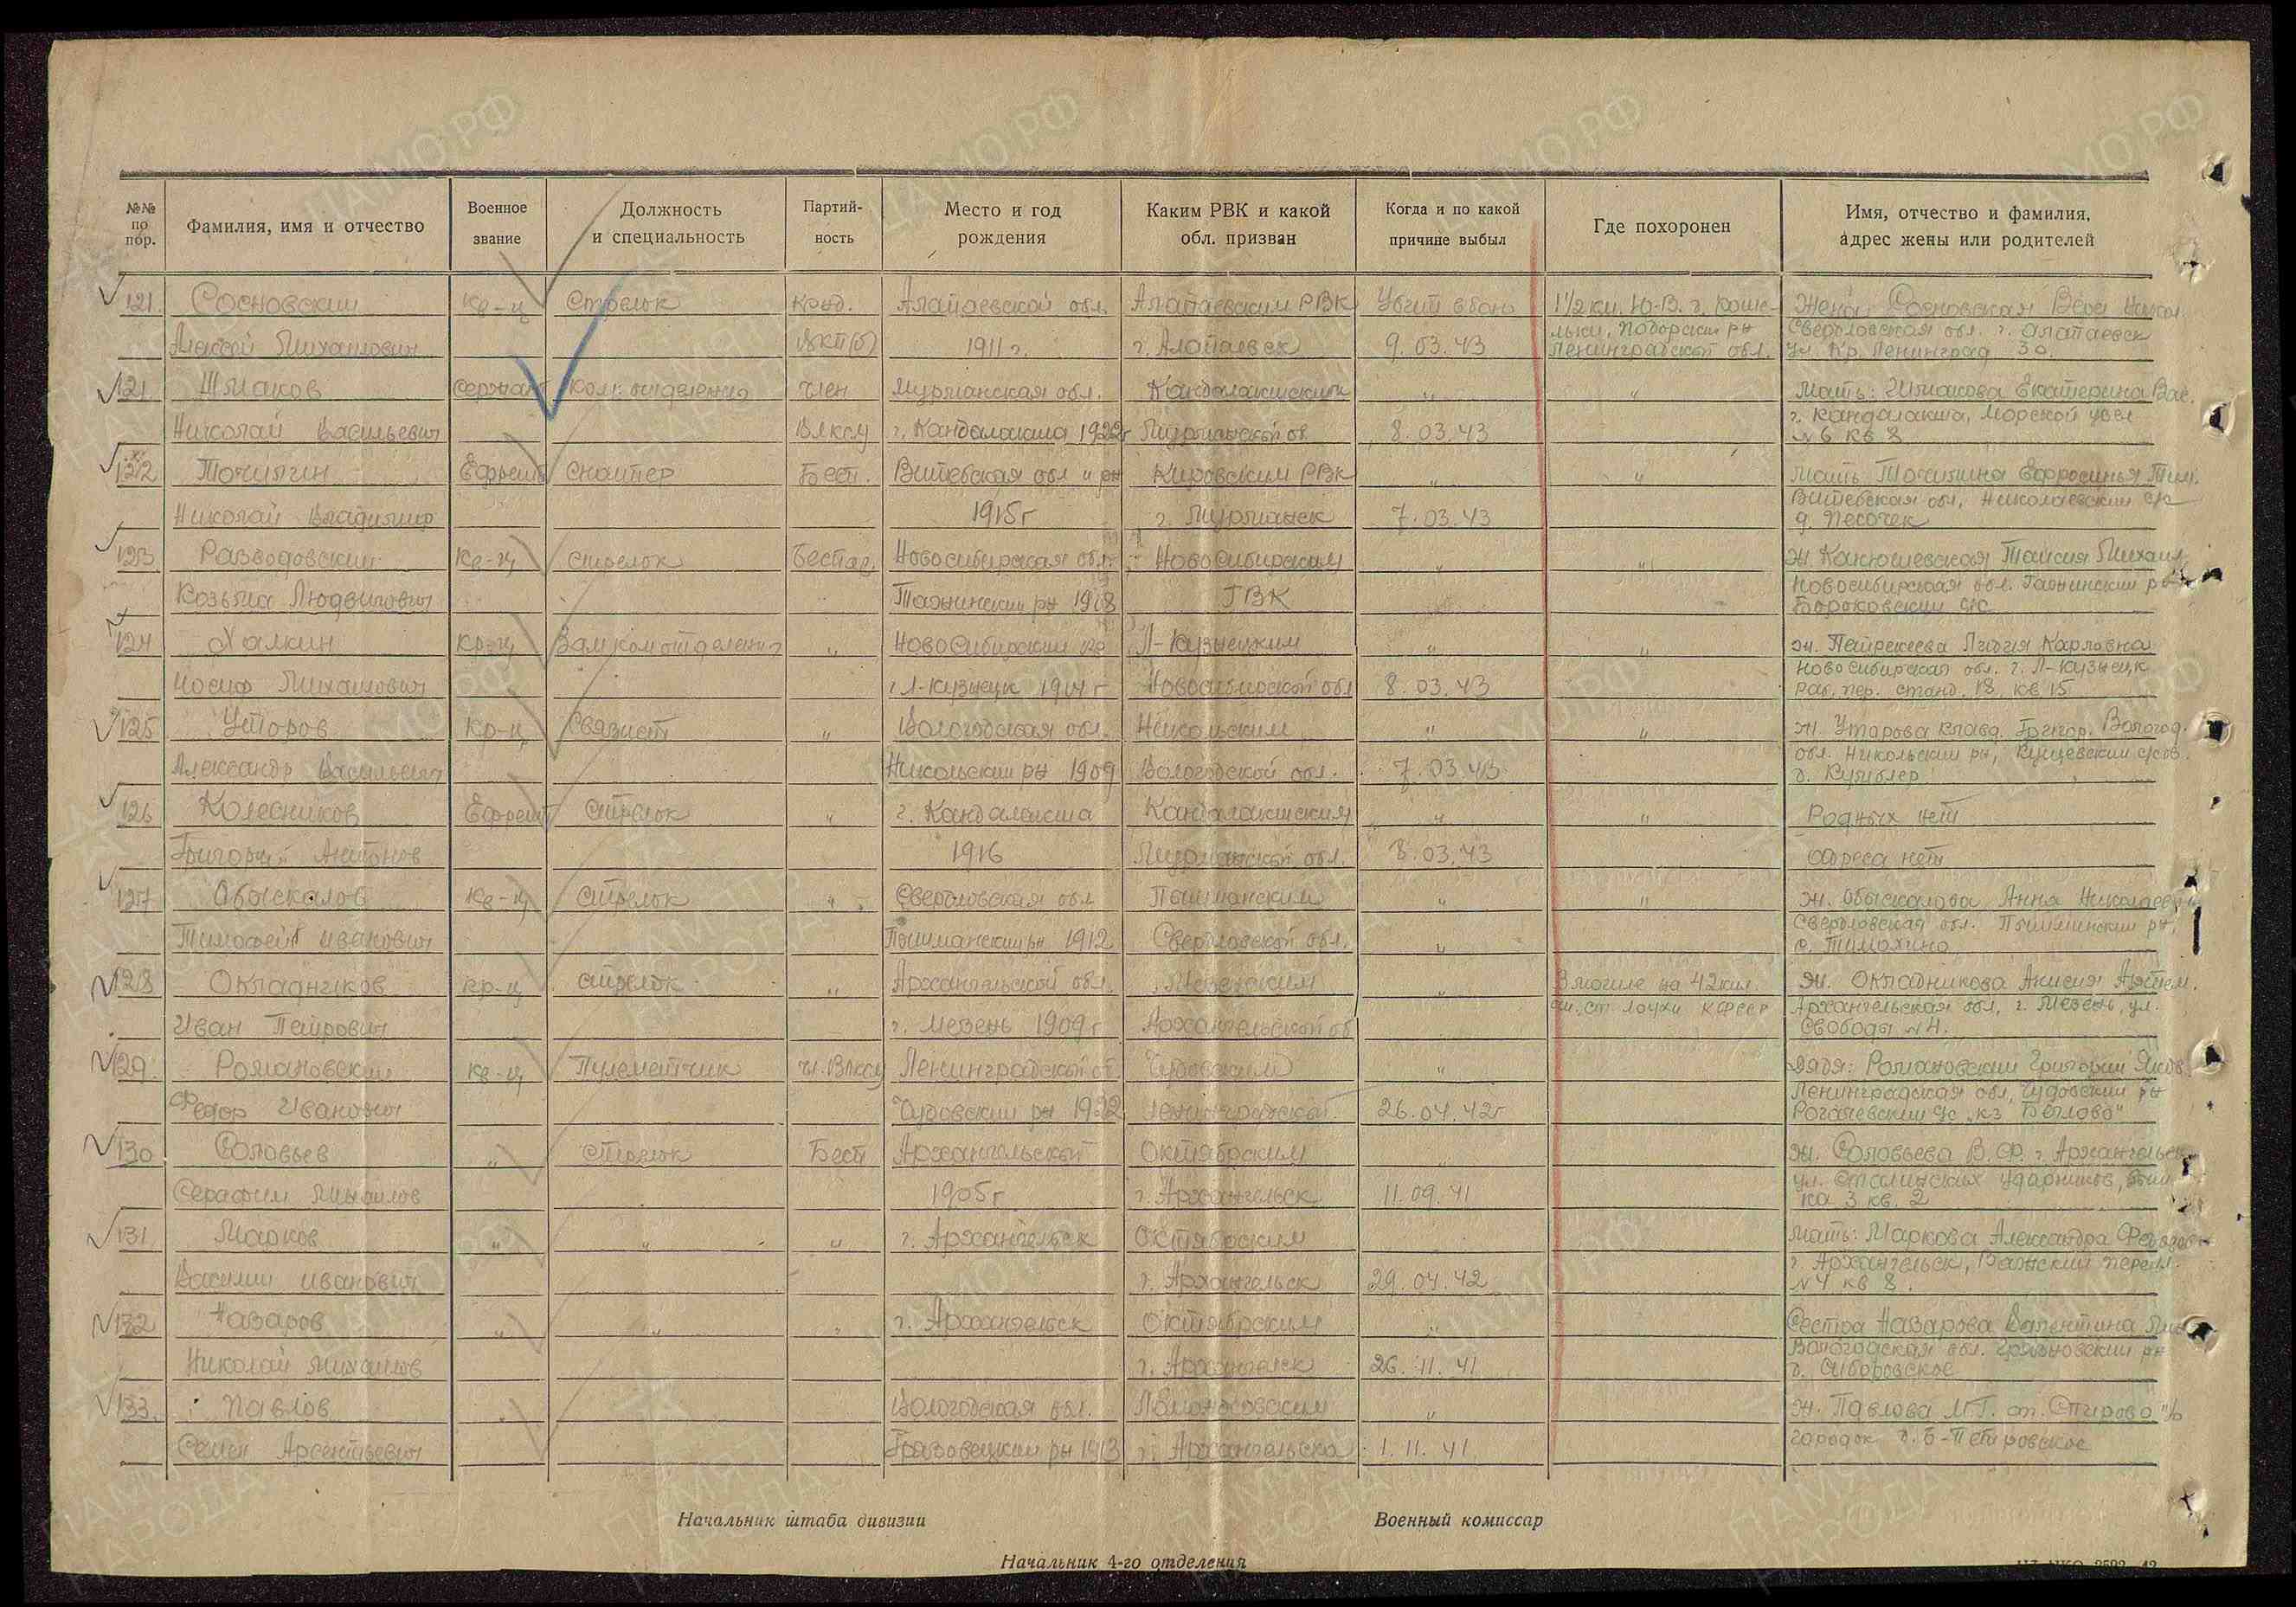 №№ по пор.
Фамилия, имя и отчество
Военное звание
Должность и специальность
Партий-ность
Место и год рождения
Каким РВК и какой обл. призван
Когда и по какой причине выбыл
Где похоронен
Имя, отчество и фамилия, адрес жены или родителей
121 Сосновский Кр-ц Стрелок Канд. Алапаевской обл. Алапаевским РВК Убит в бою 1½ км. Ю-В. г. Жена Сосновская Вера
Алексей Михайлович ВКП(б) 1911 г. г. Алапаевск 9.03.43 Ленинградской обл. Свердловская обл. г. Алапаевск
ул. Кр. Ленинград 30.
121 Шмаков Сержант Ком. отделения член Мурманская обл. Кандалакшским " " Мать: Шмакова Екатерина Вас.
Николай Васильевич ВЛКСМ г. Кандалакша 1922г Мурманской об 8.03.43 г. Кандалакша, Морской
№ 6 кв 8
122 Точилин Ефрейт Снайпер Бесп. Витебская обл и рн Кировским РВК " " Мать Точилина Ефросинья Тим.
Николай Владимир 1915г г. Мурманск 7.03.43 Витебская обл, Николаевский с/с
д. Песочек
123 Разводовский Кр-ц стрелок Беспар. Новосибирская обл. Новосибирским " " Таисия Михаил
Козьма Людвигович рн 1908 ГВК Новосибирская обл.
с/с
124 Халкин Кр-ц Зам ком отделения " Новосибирский Л-Кузнецким " " ж. Лидия Карловна
Иосиф Михайлович г Л-Кузнецк 1914 г Новосибирской обл 8.03.43 Новосибирская обл. г. Л-Кузнецк
Раб. пер. станд. 18. кв 15
125 Уторов Кр-ц Связист " Вологодская обл. Никольским " " ж Утарова Клавд. Григор. Вологод.
Александр Васильевич Никольский рн 1909 Вологодской обл. 7.03.43 обл. Никольский рн,
д.
126 Колесников Ефрейт стрелок " г. Кандалакша Кандалакшским " " Родных нет
Григорий Антонов 1916 Мурманской обл. 8.03.43 адреса нет
127 Абыскалов Кр-ц стрелок " Свердловская обл Пышминским " " ж. Абыскалова Анна
Тимофей Иванович Пышминский рн 1912 Свердловской обл. " Свердловская обл. Пышминский рн,
с. Тимохино
128 Окладников кр-ц стрелок " Архангельской обл. Мезенским " В могиле на 42 км. ж. Окладникова Анисия Артем.
Иван Петрович г. Мезень 1909 г Архангельской об ст Лоухи КФССР Архангельская обл, г. Мезень, ул.
Свободы № 4.
129 Романовский Кр-ц Пулеметчик чл. ВЛКСМ Ленинградской об Чудовским " Дядя: Романовский Григорий Яков.
Федор Иванович Чудовский рн 1922 Ленинградской 26.04.42г Ленинградская обл, Чудовский рн
Рогачевский с/с
130 Соловьев " стрелок Бесп Архангельской Октябрским ж. Соловьева В.Ф. г. Архангельск
Серафим Михайлов 1905г г. Архангельск 11.09.41 ул. Сталинских Ударников,
3 кв. 2
131 Марков " " " г. Архангельск Октябрским Мать: Маркова Александра
Василий Иванович г. Архангельск 29.04.42 г. Архангельск,
№ 4 кв 8.
132 Назаров " " " г. Архангельск Октябрским " Сестра Назарова Валентина
Николай Михайлов г. Архангельск 26.11.41 Вологодская обл. рн
133 Павлов " Вологодская обл. Ломоносовским " ж. Павлова М.Г.
Семен Арсентьевич Грязовецкий рн 1913 г. Архангельска 1.11.41 городок
Начальник штаба дивизии
Военный комиссар
Начальник 4-го отделения